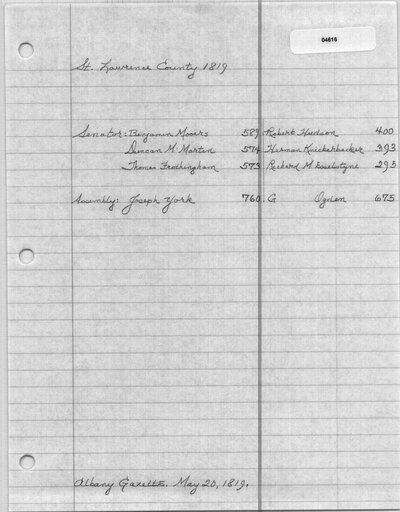 04616
St. Lawrence County 1819
Senator: Benjamin Mooers 589 Robert Hudson 400
Duncan McMarten 574 Herman Knickerbacker 393
Thomas Frothingham 573 Richard M. Esselstyne 295
Assembly: Joseph York 760 G Ogden 675
Albany Gazette. May 20, 1819.